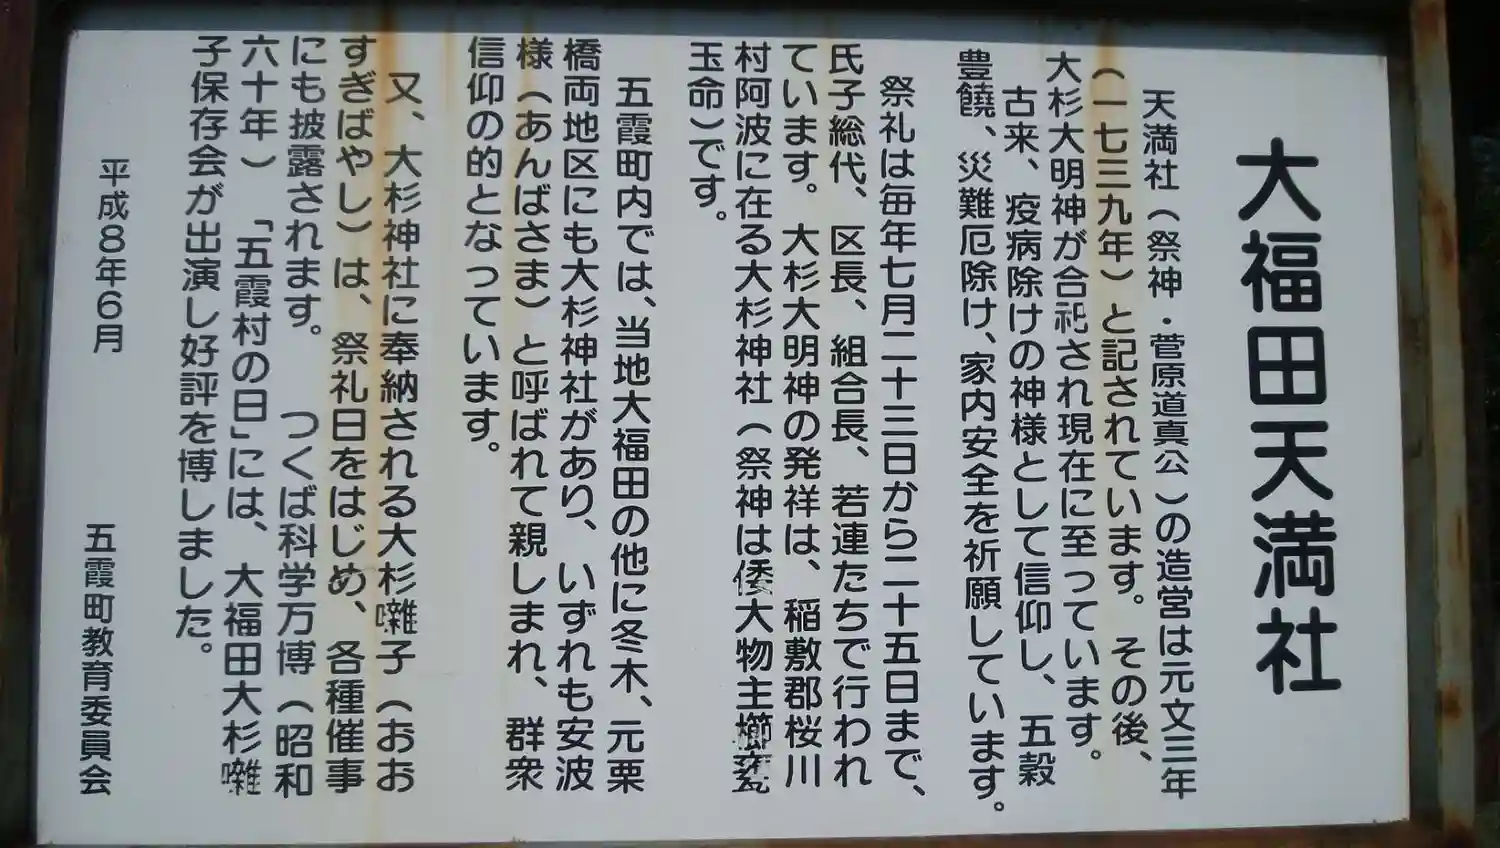 大福田天満社
天満社（祭神・菅原道真公）の造営は元文三年
（一七三九年）と記されています。その後、
大杉大明神が合祀され現在に至っています。
古来、疫病除けの神様として信仰し、五穀
豊饒、災難厄除け、家内安全を祈願しています。
祭礼は毎年七月二十三日から二十五日まで、
氏子総代、区長、組合長、若連たちで行われ
ています。大杉大明神の発祥は、稲敷郡桜川
村阿波に在る大杉神社（祭神は倭大物主櫛𤭖
玉命）です。
五霞町内では、当地大福田の他に冬木、元栗
橋両地区にも大杉神社があり、いずれも安波
様（あんばさま）と呼ばれて親しまれ、群衆
信仰の的となっています。
又、大杉神社に奉納される大杉囃子（おお
すぎばやし）は、祭礼日をはじめ、各種催事
にも披露されます。　つくば科学万博（昭和
六十年）「五霞村の日」には、大福田大杉囃
子保存会が出演し好評を博しました。
平成8年6月　五霞町教育委員会